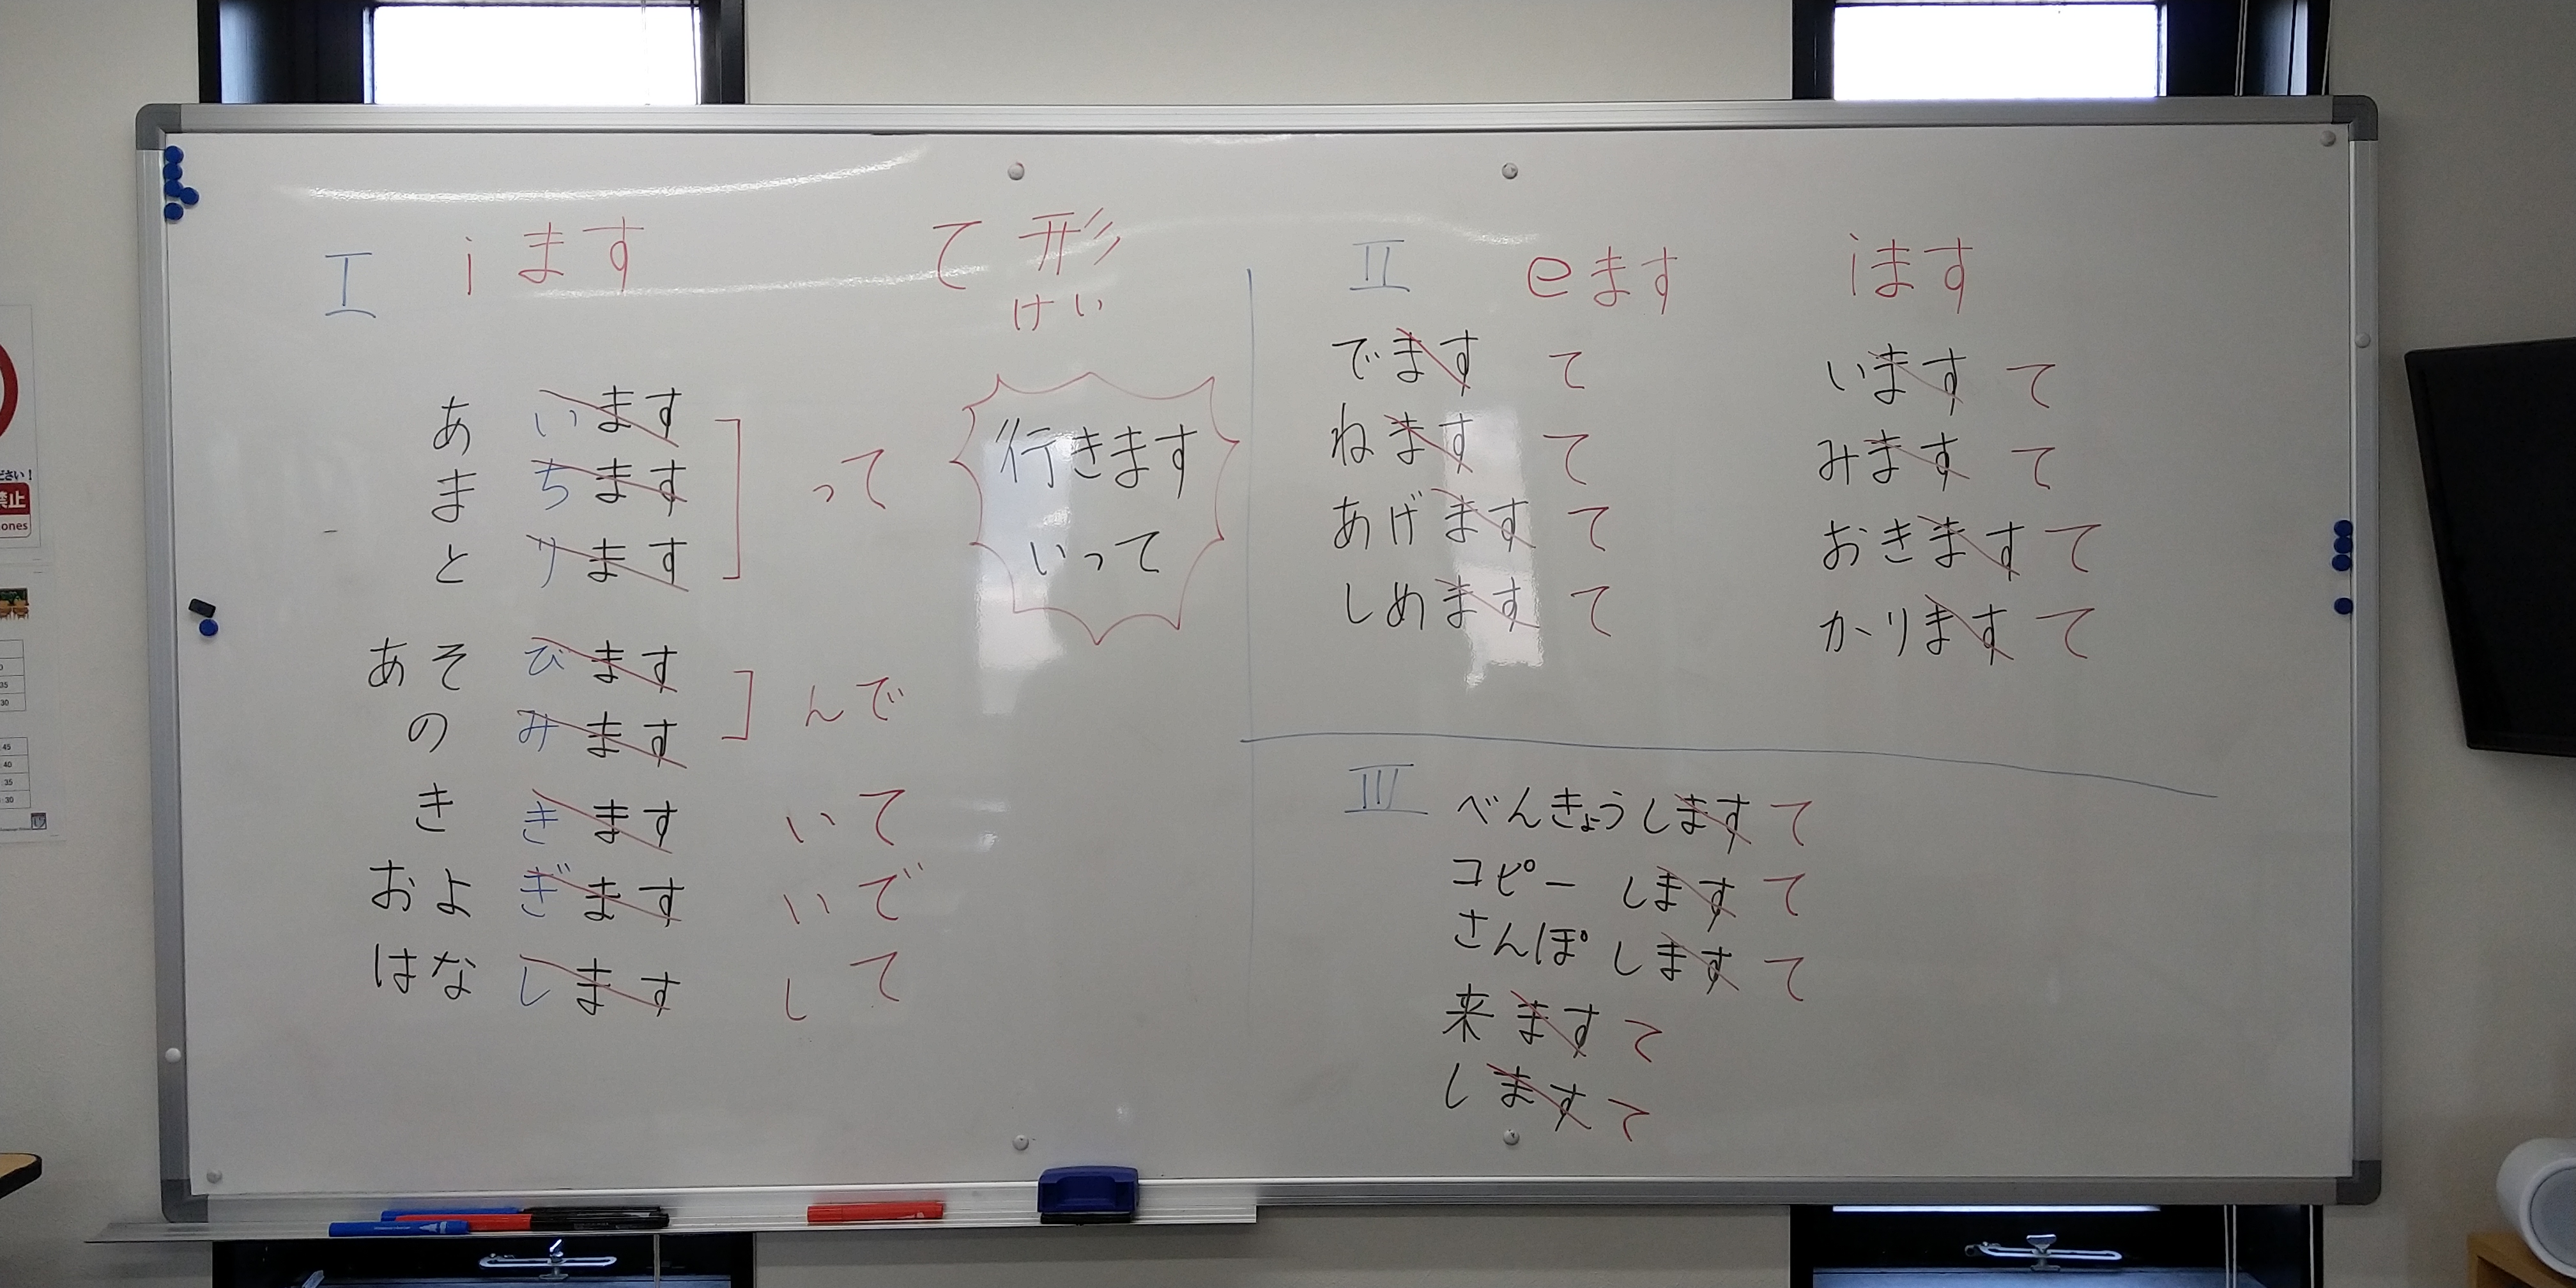 I iます て形
けい
あいます
まちます
とります
って
行きます
いって
あそびます
のみます
んで
ききます いて
およぎます いで
はなします して
II eます iます
でます て います て
ねます て みます て
あげます て おきます て
しめます て かります て
III べんきょうします て
コピーします て
さんぽします て
来ます て
します て
ださい!
禁止
ones
35
30
45
40
35
30